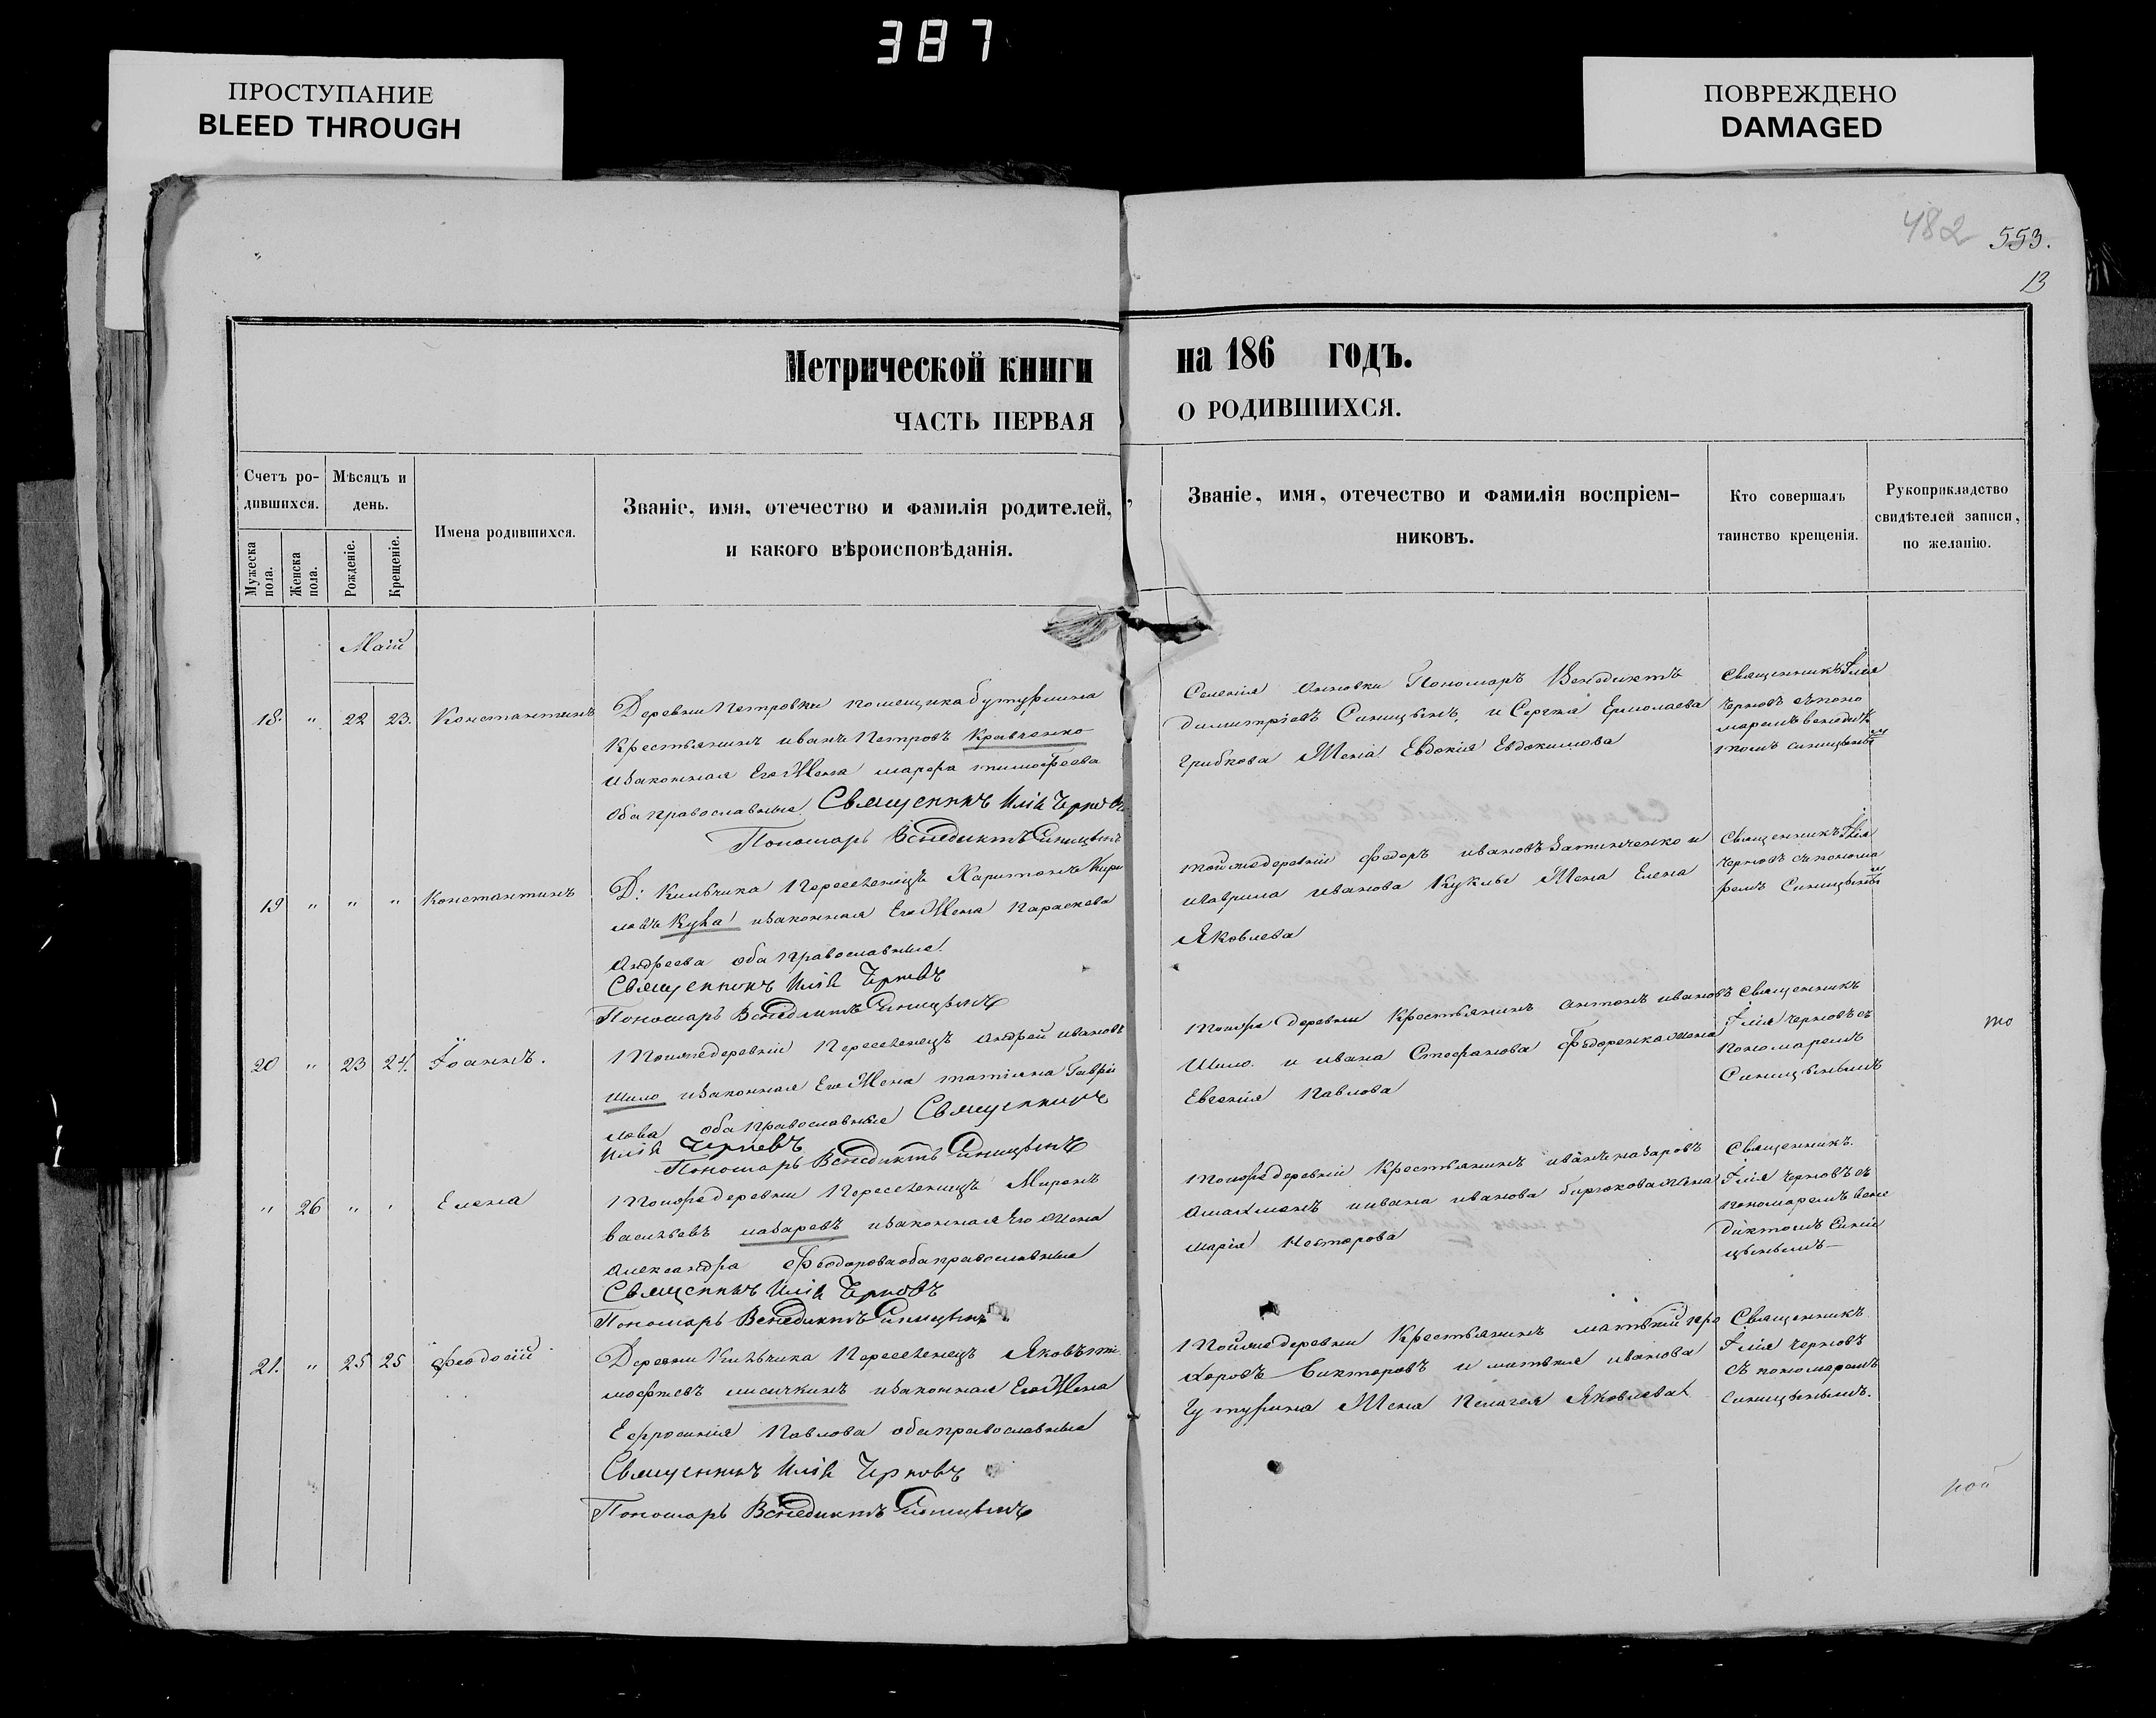 387
ПРОСТУПАНИЕ
BLEED THROUGH
ПОВРЕЖДЕНО
DAMAGED
482 553.
13
Метрической книги на 186 годъ.
ЧАСТЬ ПЕРВАЯ О РОДИВШИХСЯ.
Счетъ ро-
дившихся.
Мужеска
пола.
Женска
пола.
Мѣсяцъ и
день.
Рожденіе.
Крещеніе.
Имена родившихся.
Званіе, имя, отечество и фамилія родителей,
и какого вѣроисповѣданія.
Званіе, имя, отечество и фамилія воспріем-
никовъ.
Кто совершалъ
таинство крещенія.
Рукоприкладство
свидѣтелей записи,
по желанію.
Маій
18. " 22 23. Константинъ
Деревни Петровки помещика бутурлина
Крестьянинъ иванъ Петровъ Кравченко
изаконная Его Жена марфа тимофеева
оба православные. Священникъ Илія Черновъ
Пономарь Венедиктъ Синицынъ
Селенія Анновки Пономарь Венедиктъ
димитріевъ Синицынъ, и Сергѣя Ермолаева
Грибкова Жена Евдокія Евдокимова
Священникъ Илія
Черновъ съ поно
маремъ венеди
ктомъ синицынымъ
19 " " " Константинъ
Д: Кильчика Переселенецъ Харитонъ Кири
ловъ изаконная Его Жена Параскева
Андреева оба православные.
Священникъ Илія Черновъ
Пономарь Венедиктъ Синицынъ
тойжедеревніи Федоръ ивановъ и
иванова Куклы Жена Елена
Яковлева
Священникъ Илія
Черновъ съ понома
ремъ Синицынымъ
20 " 23 24. Іоаннъ.
Тойжедеревніи Переселенецъ Андрей ивановъ
Шило изаконная Его Жена татіяна Гаврі
лова оба православные Священникъ
Илія Черновъ
Пономарь Венедиктъ Синицынъ
Тойже деревни Крестьянинъ антонъ ивановъ
Шило. и ивана Стефанова Федоренка жена
Евгенія Павлова
Священникъ
Илія Черновъ съ
Пономаремъ
Синицынымъ
то
" 26 " " Елена
Тойже деревни Переселенецъ Миронъ
васильевъ назаревъ изаконная Его Жена
Александра Феодорова оба православные
Священникъ Илія Черновъ
Пономарь Венедиктъ Синицынъ
Тойже деревніи Крестьянинъ иванъ назаровъ
иивана иванова бирюкова жена
марія Нестерова
Священникъ.
Илія Черновъ съ
пономаремъ вене
диктомъ Сини
цынымъ
21. " 25 25 Феодосій
Деревни Кильчика Переселенецъ Яковъ ти
мофеевъ лисичкинъ изаконная Его Жена
Ефросинія Павлова оба православные
Священникъ Илія Черновъ
Пономарь Венедиктъ Синицынъ
Тойже деревни Крестьянинъ матвѣй
и матвея иванова
Жена Пелагея Яковлева
Священникъ
Илія Черновъ
съ пономаремъ
Синицынымъ.
рой